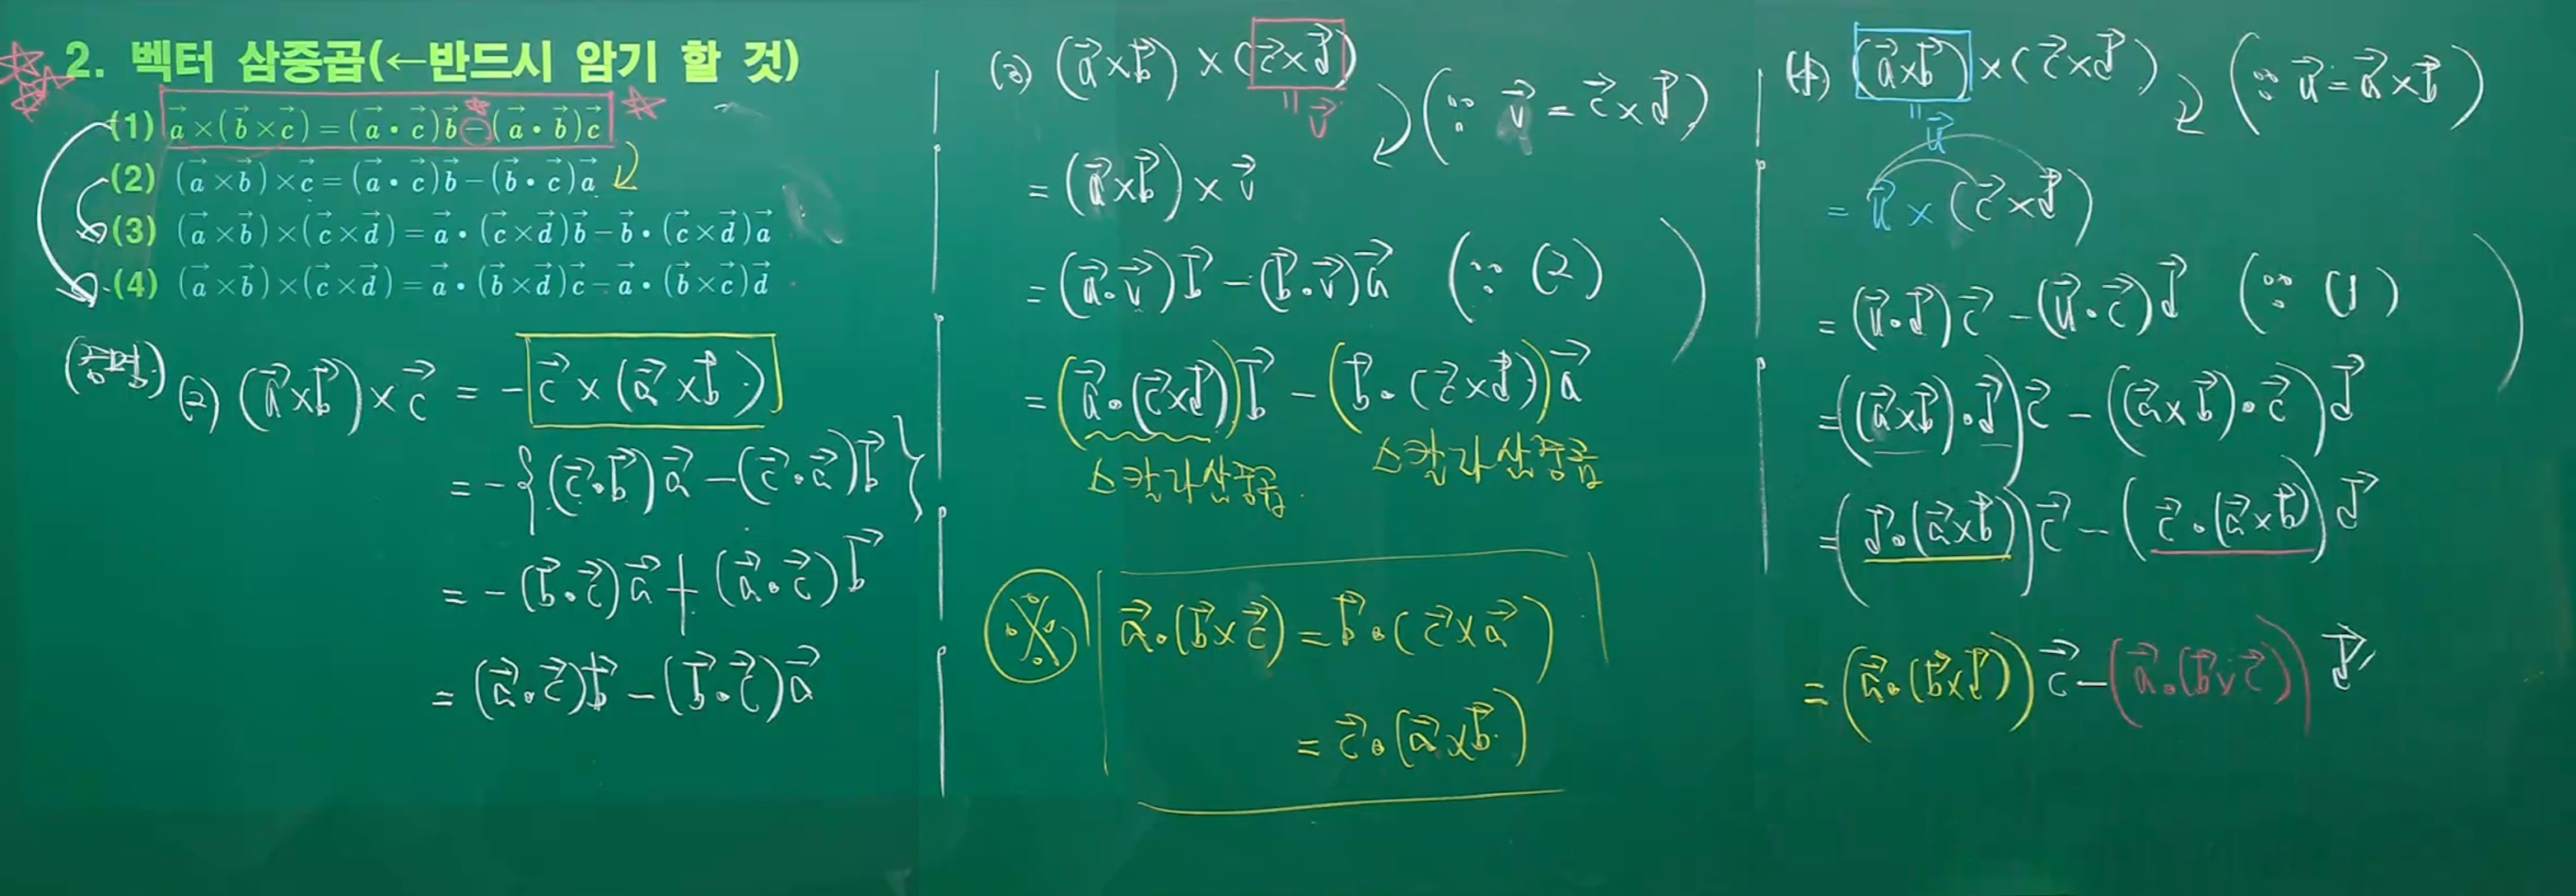 2. 벡터 삼중곱(←반드시 암기 할 것)
(1) $\vec{a}\times(\vec{b}\times\vec{c})=(\vec{a}\cdot\vec{c})\vec{b}-(\vec{a}\cdot\vec{b})\vec{c}$
(2) $(\vec{a}\times\vec{b})\times\vec{c}=(\vec{a}\cdot\vec{c})\vec{b}-(\vec{b}\cdot\vec{c})\vec{a}$
(3) $(\vec{a}\times\vec{b})\times(\vec{c}\times\vec{d})=\vec{a}\cdot(\vec{c}\times\vec{d})\vec{b}-\vec{b}\cdot(\vec{c}\times\vec{d})\vec{a}$
(4) $(\vec{a}\times\vec{b})\times(\vec{c}\times\vec{d})=\vec{a}\cdot(\vec{b}\times\vec{d})\vec{c}-\vec{a}\cdot(\vec{b}\times\vec{c})\vec{d}$
(증명) (2) $(\vec{a}\times\vec{b})\times\vec{c}=-\vec{c}\times(\vec{a}\times\vec{b})$
$=-\{(\vec{c}\cdot\vec{b})\vec{a}-(\vec{c}\cdot\vec{a})\vec{b}\}$
$=-(\vec{b}\cdot\vec{c})\vec{a}+(\vec{a}\cdot\vec{c})\vec{b}$
$=(\vec{a}\cdot\vec{c})\vec{b}-(\vec{b}\cdot\vec{c})\vec{a}$
(3) $(\vec{a}\times\vec{b})\times(\vec{c}\times\vec{d})$
$=\vec{v}$ $(\because \vec{v}=\vec{c}\times\vec{d})$
$=(\vec{a}\times\vec{b})\times\vec{v}$
$=(\vec{a}\cdot\vec{v})\vec{b}-(\vec{b}\cdot\vec{v})\vec{a}$ $(\because (2))$
$=(\vec{a}\cdot(\vec{c}\times\vec{d}))\vec{b}-(\vec{b}\cdot(\vec{c}\times\vec{d}))\vec{a}$
스칼라삼중곱. 스칼라삼중곱
※ $\vec{a}\cdot(\vec{b}\times\vec{c})=\vec{b}\cdot(\vec{c}\times\vec{a})$
$=\vec{c}\cdot(\vec{a}\times\vec{b})$
(4) $(\vec{a}\times\vec{b})\times(\vec{c}\times\vec{d})$ $(\because \vec{u}=\vec{a}\times\vec{b})$
$=\vec{u}$
$=\vec{u}\times(\vec{c}\times\vec{d})$
$=(\vec{u}\cdot\vec{d})\vec{c}-(\vec{u}\cdot\vec{c})\vec{d}$ $(\because (1))$
$=((\vec{a}\times\vec{b})\cdot\vec{d})\vec{c}-((\vec{a}\times\vec{b})\cdot\vec{c})\vec{d}$
$=(\vec{d}\cdot(\vec{a}\times\vec{b}))\vec{c}-(\vec{c}\cdot(\vec{a}\times\vec{b}))\vec{d}$
$=(\vec{a}\cdot(\vec{b}\times\vec{d}))\vec{c}-(\vec{a}\cdot(\vec{b}\times\vec{c}))\vec{d}$